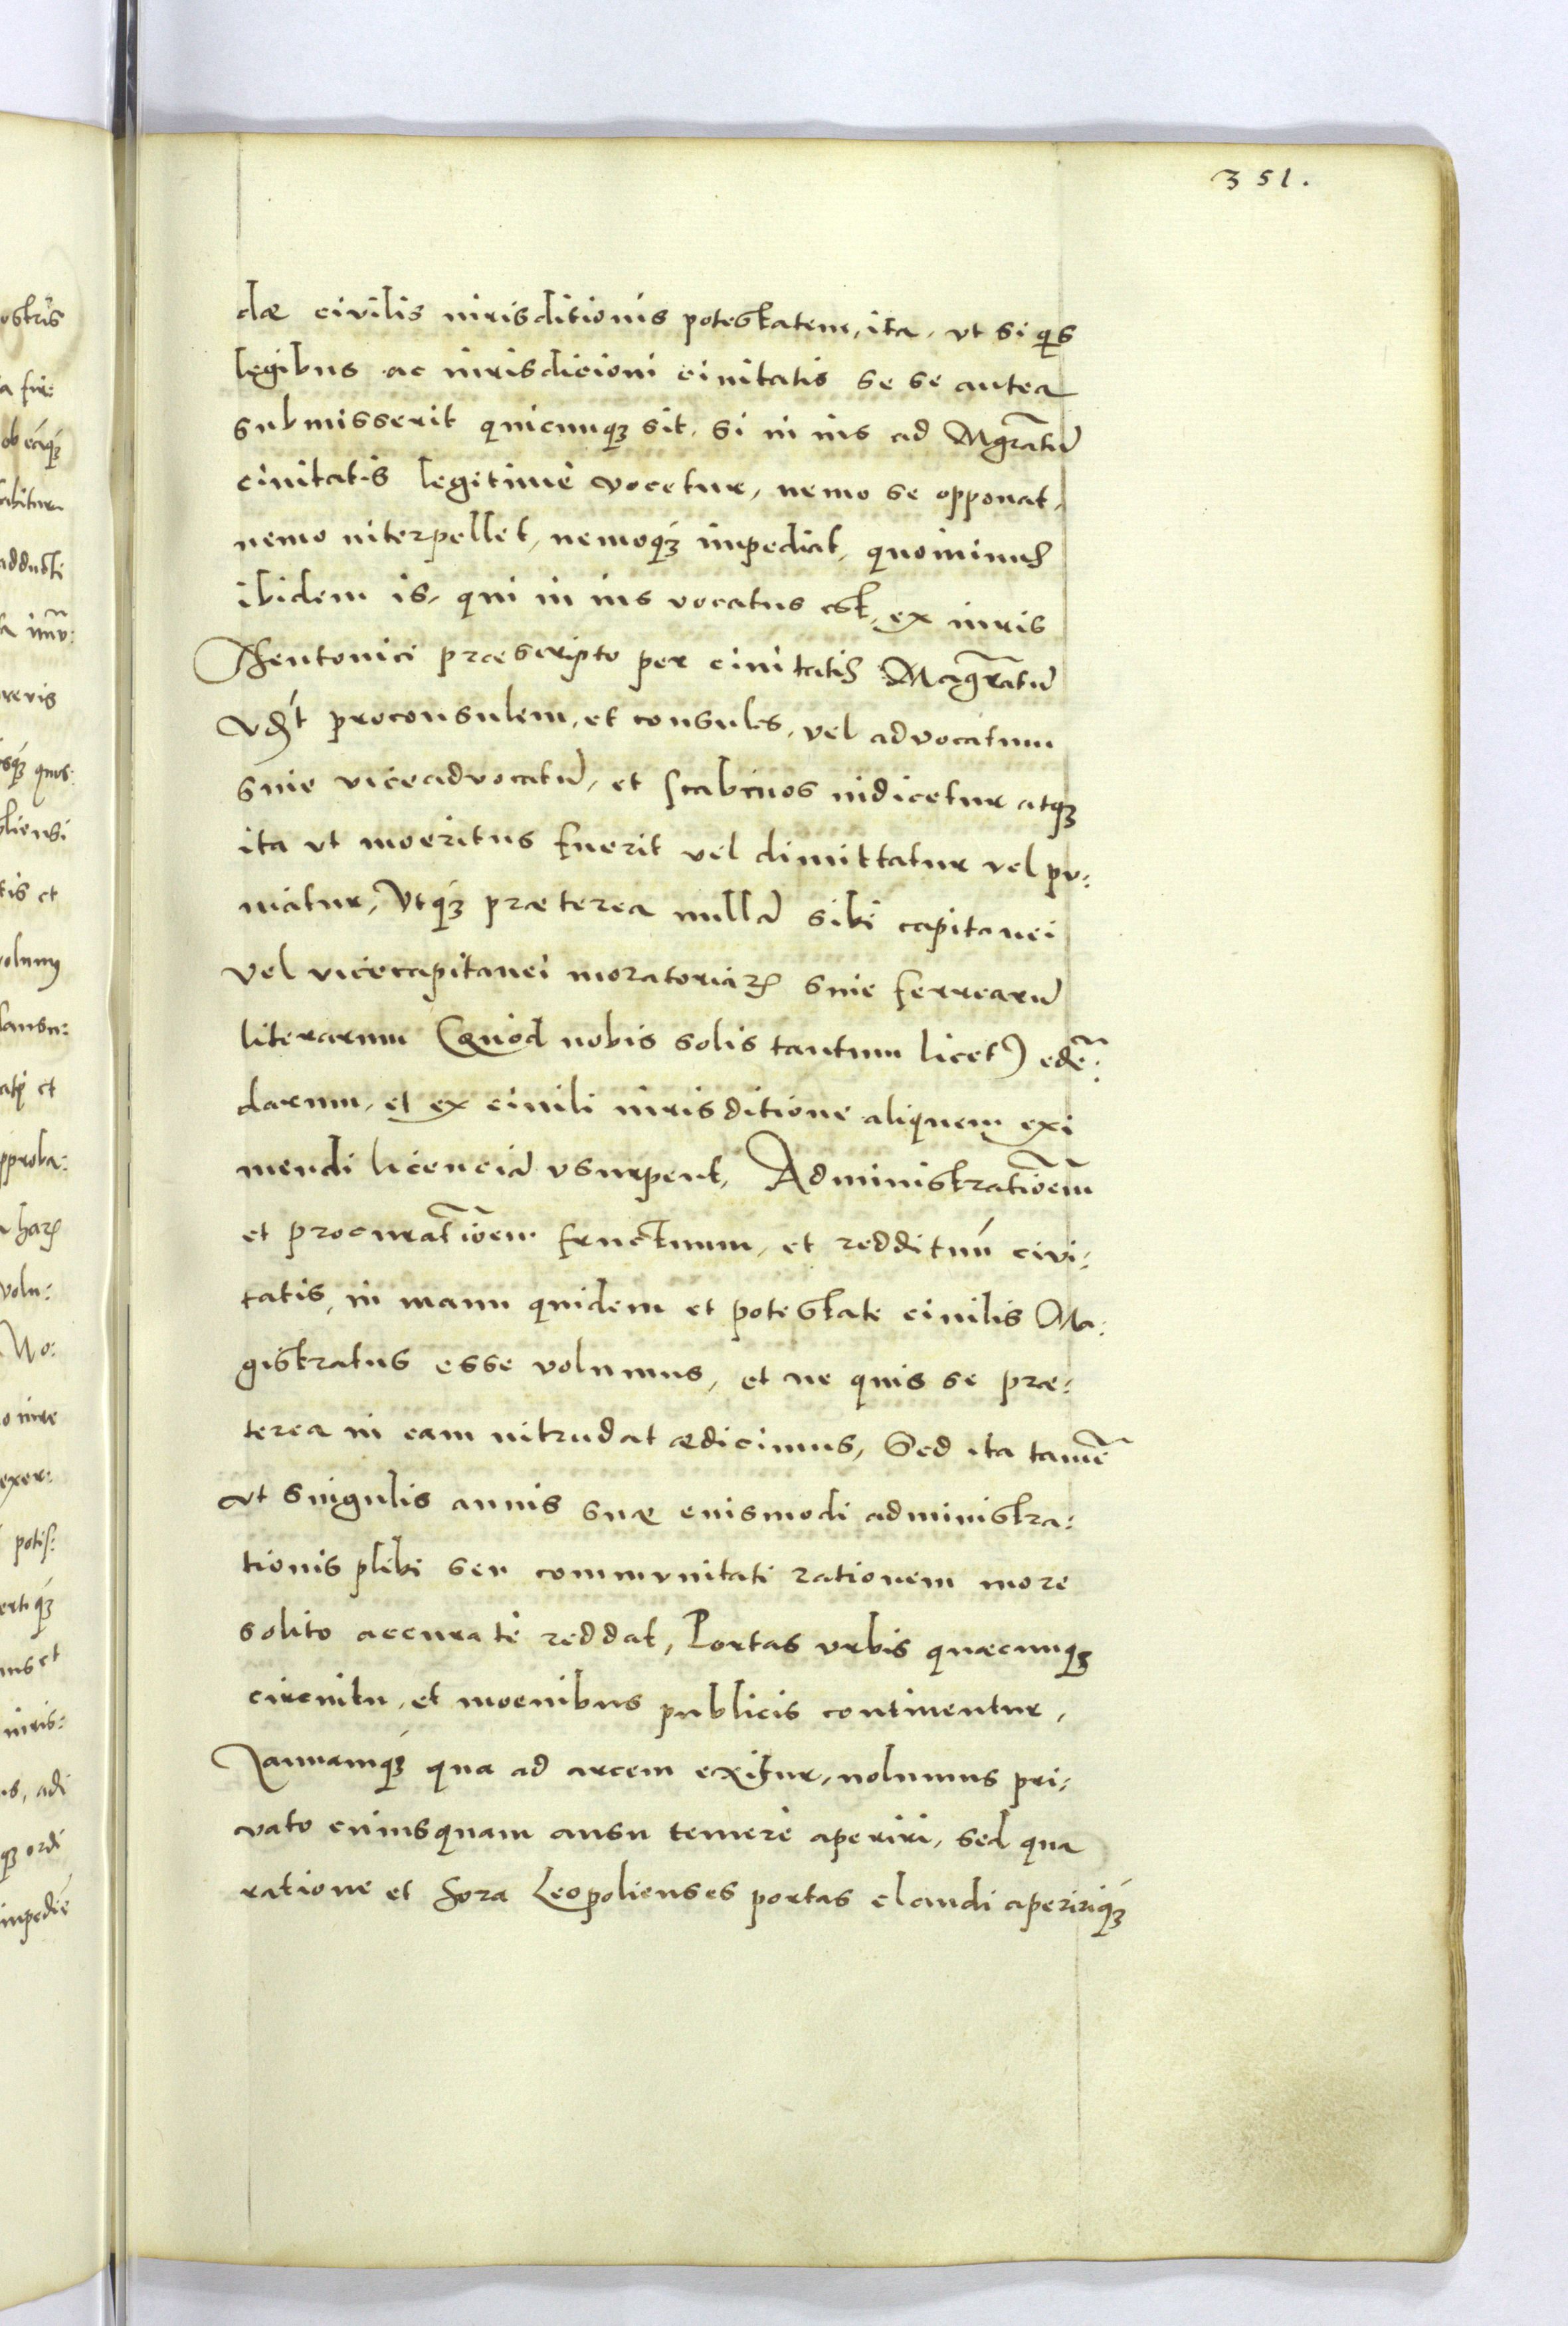 351.
dæ civilis iurisditionis potestatem, ita, vt si q̃s
legibus ac iurisdicioni ciuitatis se se antea
submisserit quicunqȝ sit, si in ius ad Mgr̃atũ
ciuitatis legitimè vocetur, nemo se opponat,
nemo interpellet, nemoqȝ́ impediat, quominus
ibidem is, qui in ius vocatus est, ex iuris
Theutonici præscripto per ciuitatis Magr̃atũ
proconsulem, et consules, vel advocatum
siue viceadvocatũ, et scabinos iudicetur atqȝ
ita vt moeritus fuerit vel dimittatur vel pu:
niatur, Vtqȝ́ præterea nullã sibi capitanei
vel vicecapitanei moratoriaꝝ siue ferrearũ
literarum (quod nobis solis tantum licet) edẽ:
darum, et ex ciuili iurisditione aliquem exi
mendi licenciã vsurpent, Administratiõem
et procuratiõem fructuum, et reddituũ civi:
tatis, in manu quidem et potestate ciuilis Ma:
gistratus esse volumus, et ne quis se præ:
terea in eam intrudat ædicimus, Sed ita tamẽ
vt singulis annis suæ eiusmodi administra:
tionis plebi seu communitati rationem more
solito accuratè reddat, Portas vrbis quæcunqȝ
circuitu, et moenibus publicis continentur,
Ianuamqȝ́ qua ad arcem exitur, nolumus pri:
vato cuiusquam ausu temerè aperiri, sed qua
ratione et hora Leopolienses portas claudi apeririqȝ́